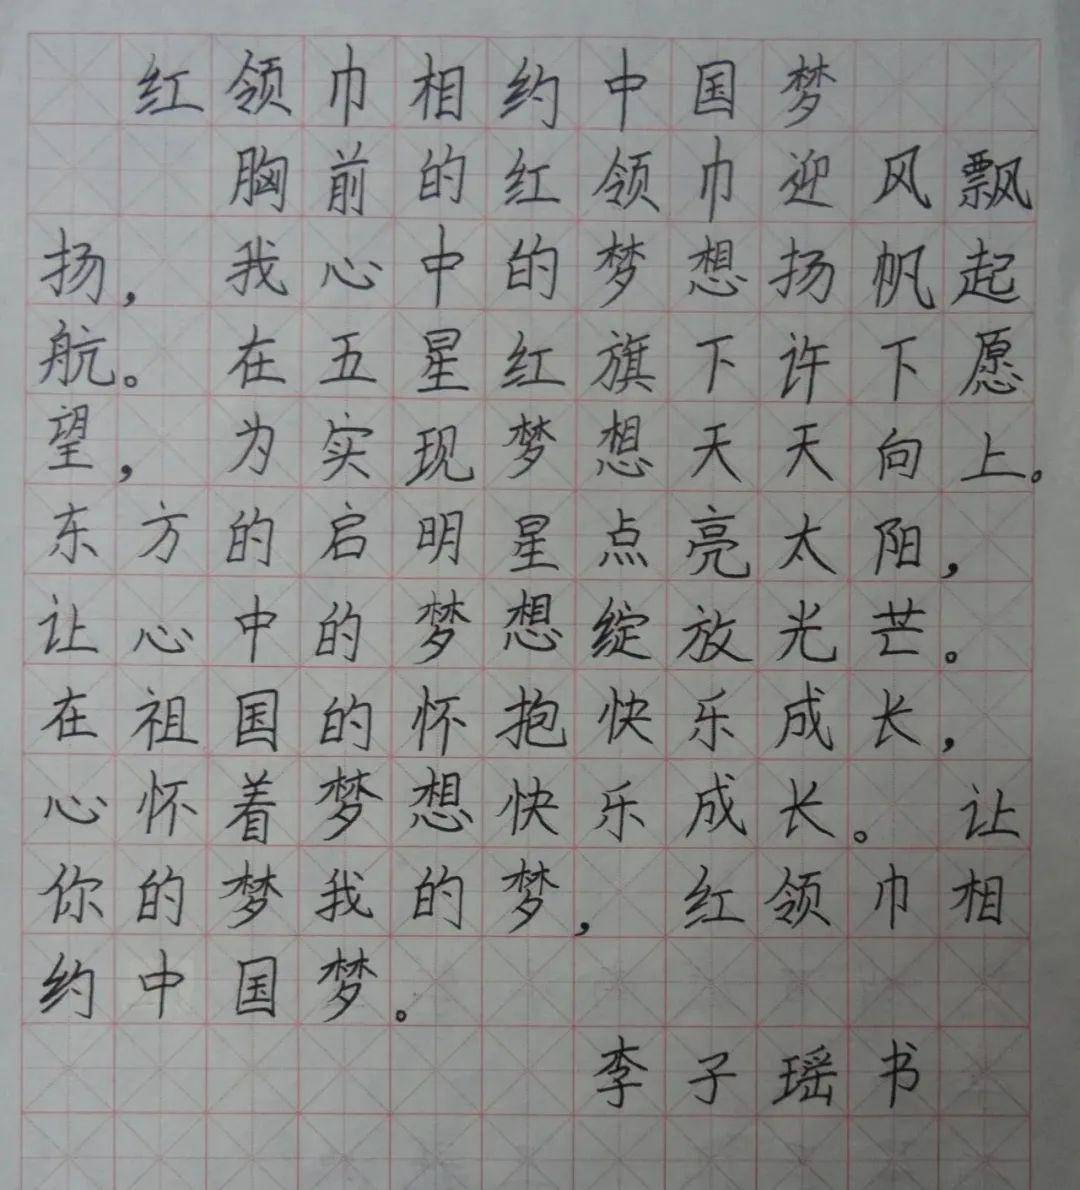 红领巾相约中国梦
胸前的红领巾迎风飘
扬，我心中的梦想扬帆起
航。在五星红旗下许下愿
望，为实现梦想天天向上。
东方的启明星点亮太阳，
让心中的梦想绽放光芒。
在祖国的怀抱快乐成长，
心怀着梦想快乐成长。让
你的梦我的梦，红领巾相
约中国梦。
李子瑶书